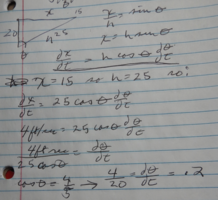 x 15
20
h=25
θ
x/h = sinθ
x = h sinθ
dx/dt = h cosθ dθ/dt
x=15 so h=25 so:
dx/dt = 25 cosθ dθ/dt
4ft/sec = 25 cosθ dθ/dt
4ft/sec / 25 cosθ = dθ/dt
cosθ = 4/5 → 4/20 = dθ/dt = .2